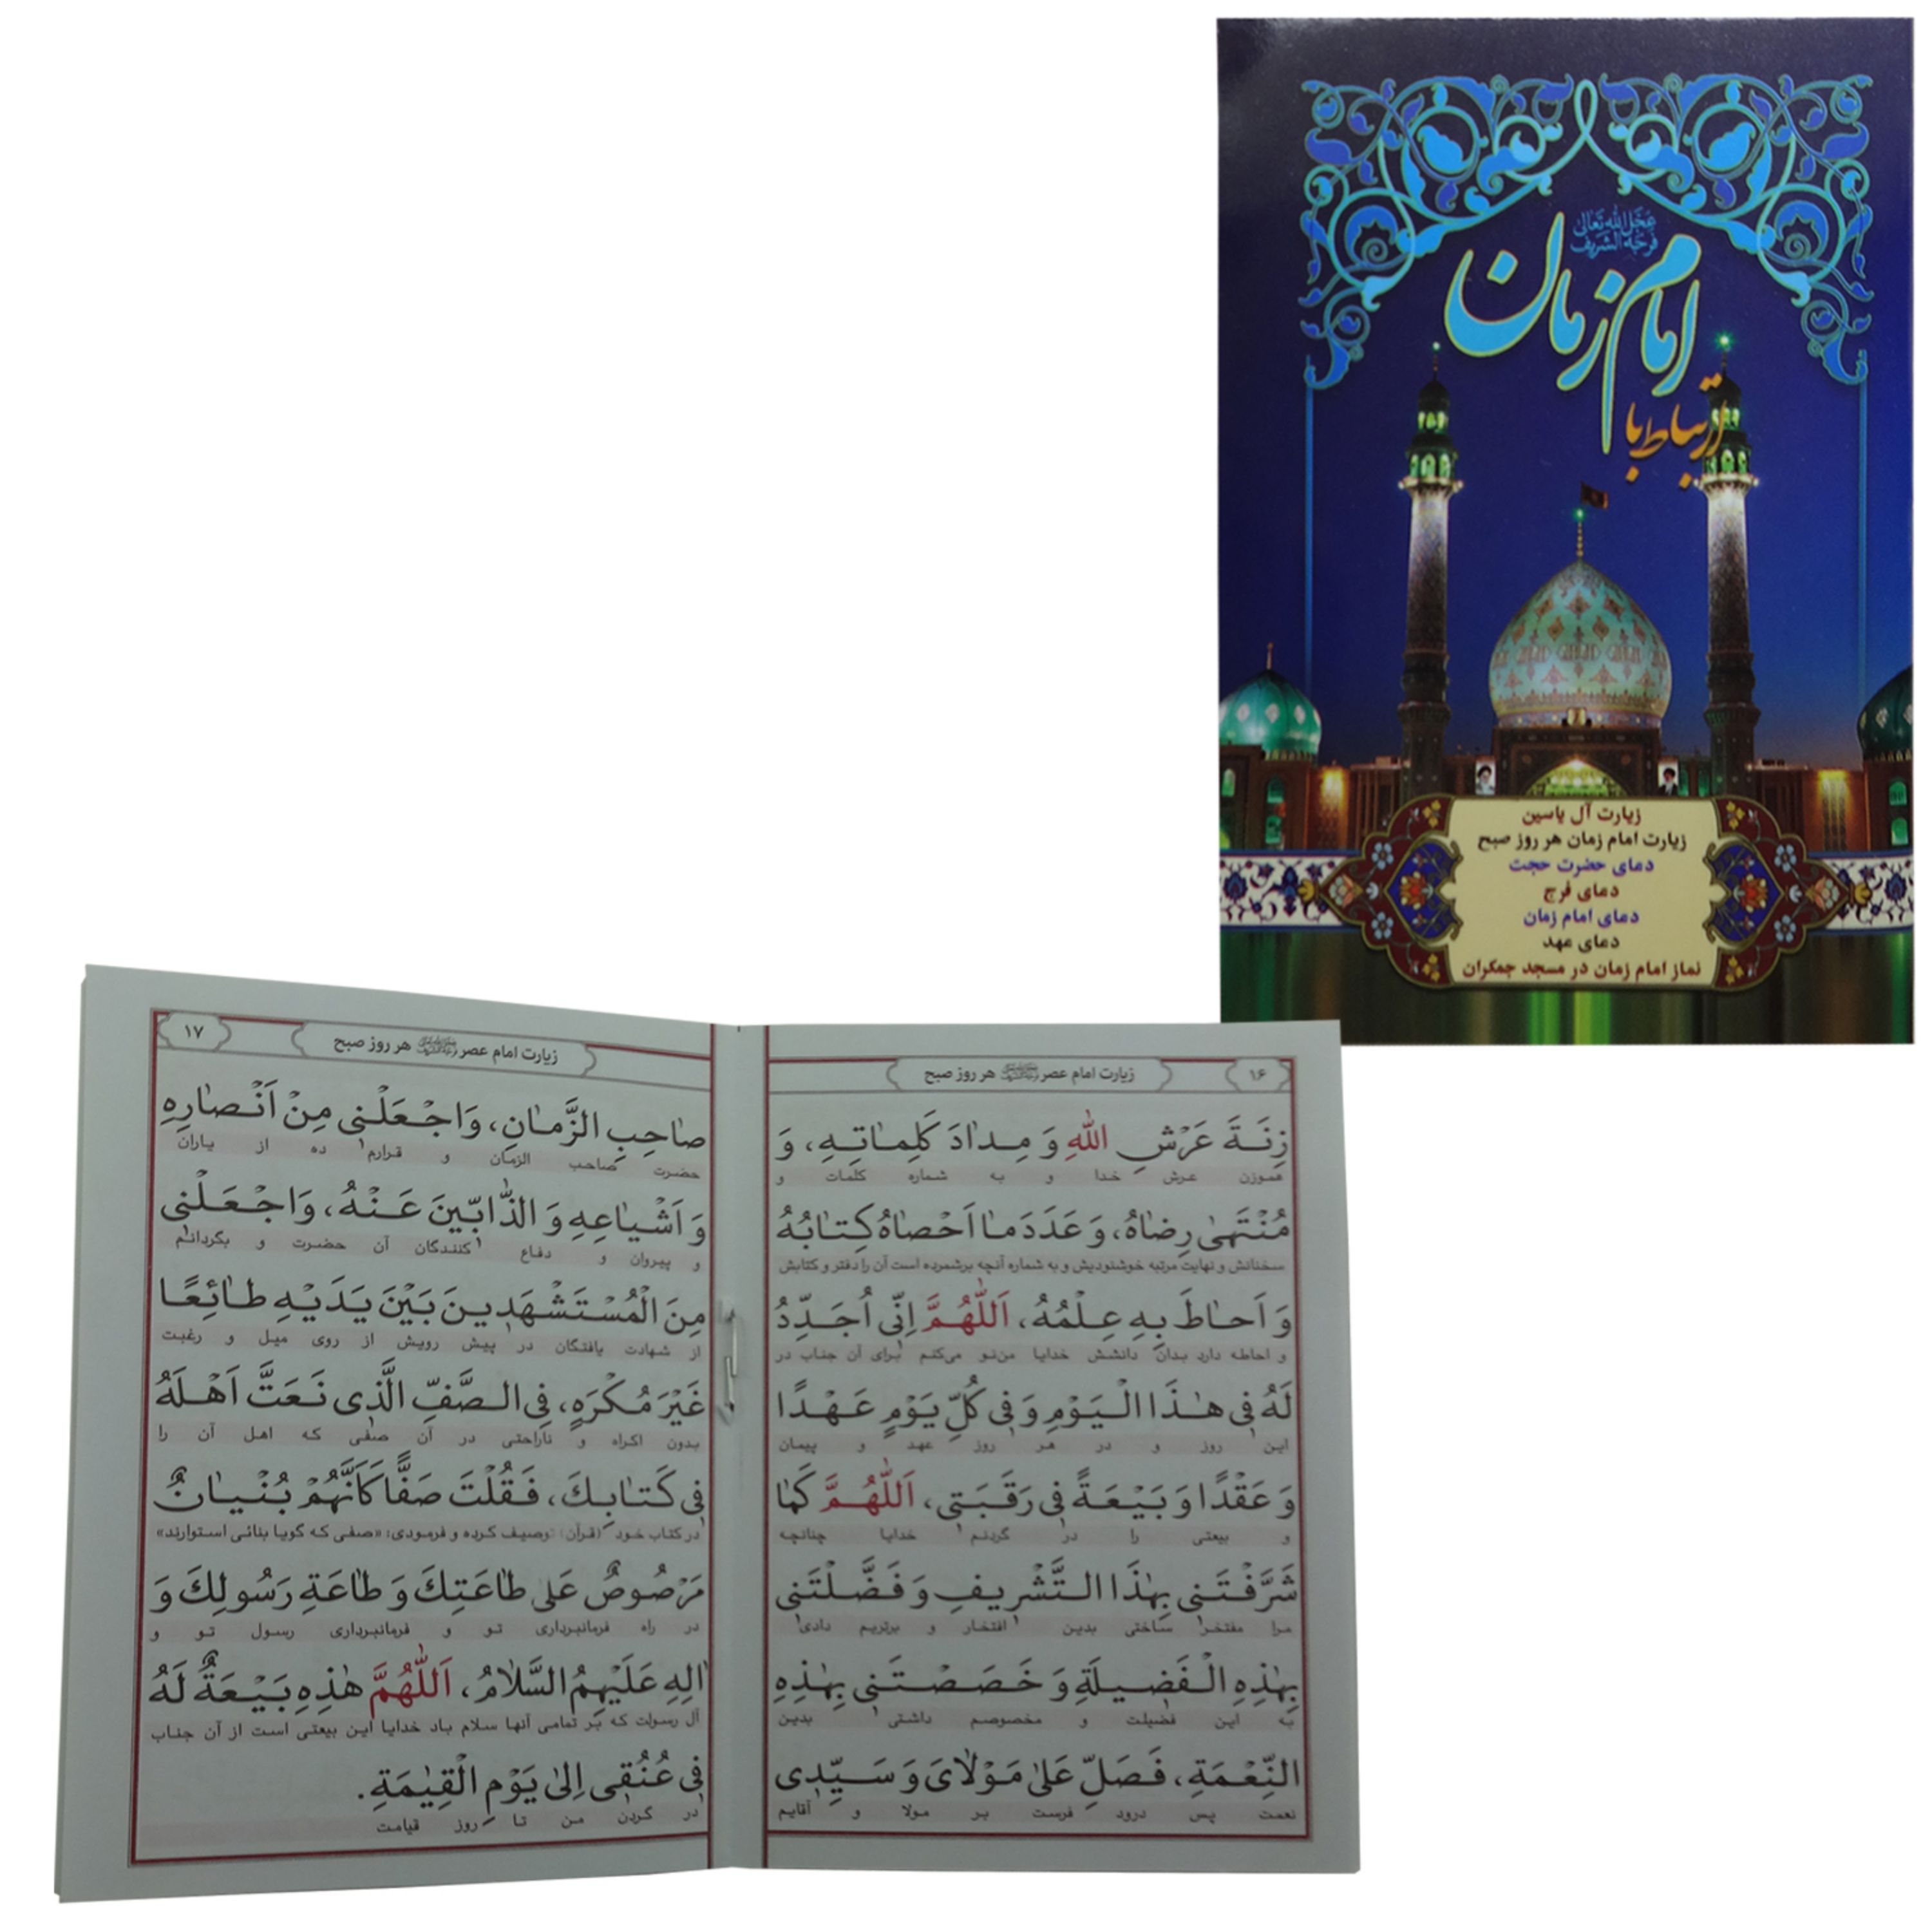 عجل الله تعالی
فرجه الشریف
امام زمان
ارتباط با
زیارت آل یاسین
زیارت امام زمان هر روز صبح
دعای حضرت حجت
دعای فرج
دعای امام زمان
دعای عهد
نماز امام زمان در مسجد جمکران
۱۶
زیارت امام عصر هر روز صبح
زِنَةَ عَرْشِ اللّٰهِ وَ مِدٰادَ كَلِمٰاتِهِ، وَ
هموزن عرش خدا و به شماره کلمات و
مُنْتَهىٰ رِضٰاهُ، وَ عَدَدَ مٰا اَحْصٰاهُ كِتٰابُهُ
سخنانش و نهایت مرتبه خوشنودیش و به شماره آنچه برشمرده است آن را دفتر و کتابش
وَ اَحٰاطَ بِهِ عِلْمُهُ، اَللّٰهُمَّ اِنّي اُجَدِّدُ
و احاطه دارد بدان دانشش خدایا من نو می‌کنم برای آن جناب در
لَهُ في هٰذَا الْيَوْمِ وَ في كُلِّ يَوْمٍ عَهْدًا
این روز و در هر روز عهد و پیمان
وَ عَقْدًا وَ بَيْعَةً في رَقَبَتي، اَللّٰهُمَّ كَمٰا
و بیعتی را در گردنم خدایا چنانچه
شَرَّفْتَني بِهٰذَا التَّشْريفِ وَ فَضَّلْتَني
مرا مفتخر ساختی بدین افتخار و برتریم دادی
بِهٰذِهِ الْفَضيلَةِ وَ خَصَصْتَني بِهٰذِهِ
به این فضیلت و مخصوصم داشتی بدین
النِّعْمَةِ، فَصَلِّ عَلىٰ مَوْلاٰيَ وَ سَيِّدي
نعمت پس درود فرست بر مولا و آقایم
۱۷
زیارت امام عصر هر روز صبح
صٰاحِبِ الزَّمٰانِ، وَ اجْعَلْني مِنْ اَنْصٰارِهِ
حضرت صاحب الزمان و قرارم ده از یاران
وَ اَشْيٰاعِهِ وَ الذّٰابّينَ عَنْهُ، وَ اجْعَلْني
و پیروان و دفاع کنندگان آن حضرت و بگردانم
مِنَ الْمُسْتَشْهَدينَ بَيْنَ يَدَيْهِ طٰائِعًا
از شهادت یافتگان در پیش رویش از روی میل و رغبت
غَيْرَ مُكْرَهٍ، فِي الصَّفِّ الَّذي نَعَتَّ اَهْلَهُ
بدون اکراه و ناراحتی در آن صفی که اهل آن را
في كِتٰابِكَ، فَقُلْتَ صَفًّا كَاَنَّهُمْ بُنْيٰانٌ
در کتاب خود (قرآن) توصیف کرده و فرمودی: «صفی که گویا بنائی استوارند»
مَرْصُوصٌ عَلىٰ طٰاعَتِكَ وَ طٰاعَةِ رَسُولِكَ وَ
در راه فرمانبرداری تو و فرمانبرداری رسول تو و
اٰلِهِ عَلَيْهِمُ السَّلاٰمُ، اَللّٰهُمَّ هٰذِهِ بَيْعَةٌ لَهُ
آل رسولت که بر تمامی آنها سلام باد خدایا این بیعتی است از آن جناب
في عُنُقي اِلىٰ يَوْمِ الْقِيٰمَةِ.
در گردن من تا روز قیامت